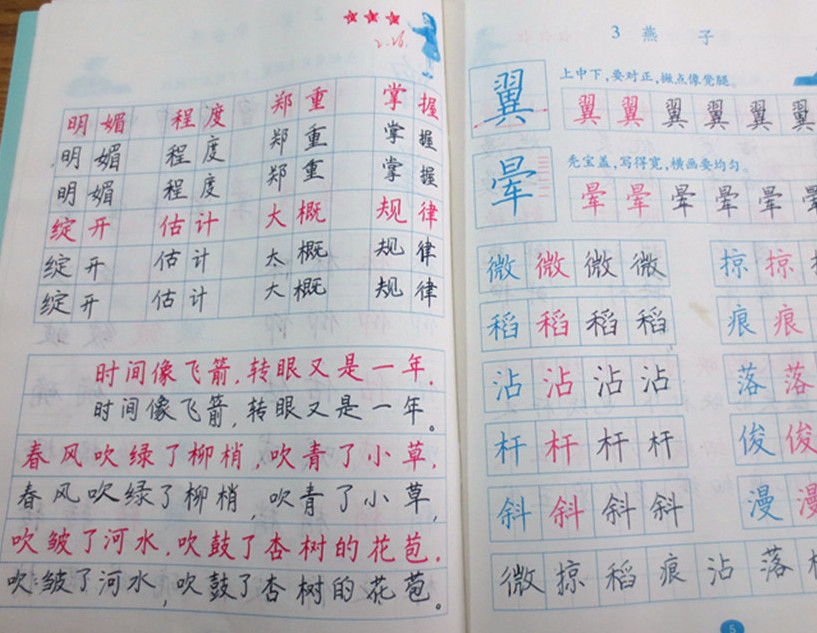 2.26.
明媚 程度 郑重 掌握
明媚 程度 郑重 掌握
明媚 程度 郑重 掌握
绽开 估计 大概 规律
绽开 估计 大概 规律
绽开 估计 大概 规律
时间像飞箭,转眼又是一年.
时间像飞箭,转眼又是一年。
春风吹绿了柳梢,吹青了小草,
春风吹绿了柳梢,吹青了小草,
吹皱了河水,吹鼓了杏树的花苞.
吹皱了河水,吹鼓了杏树的花苞。
3 燕子
翼 上中下,要对正,撇点像凳腿。
翼翼翼翼翼翼
晕 秃宝盖,写得宽,横画要均匀。
晕晕晕晕晕晕
微微微微 掠掠
稻稻稻稻 痕痕
沾沾沾沾 落落
杆杆杆杆 俊俊
斜斜斜斜 漫漫
微掠稻痕沾落
5